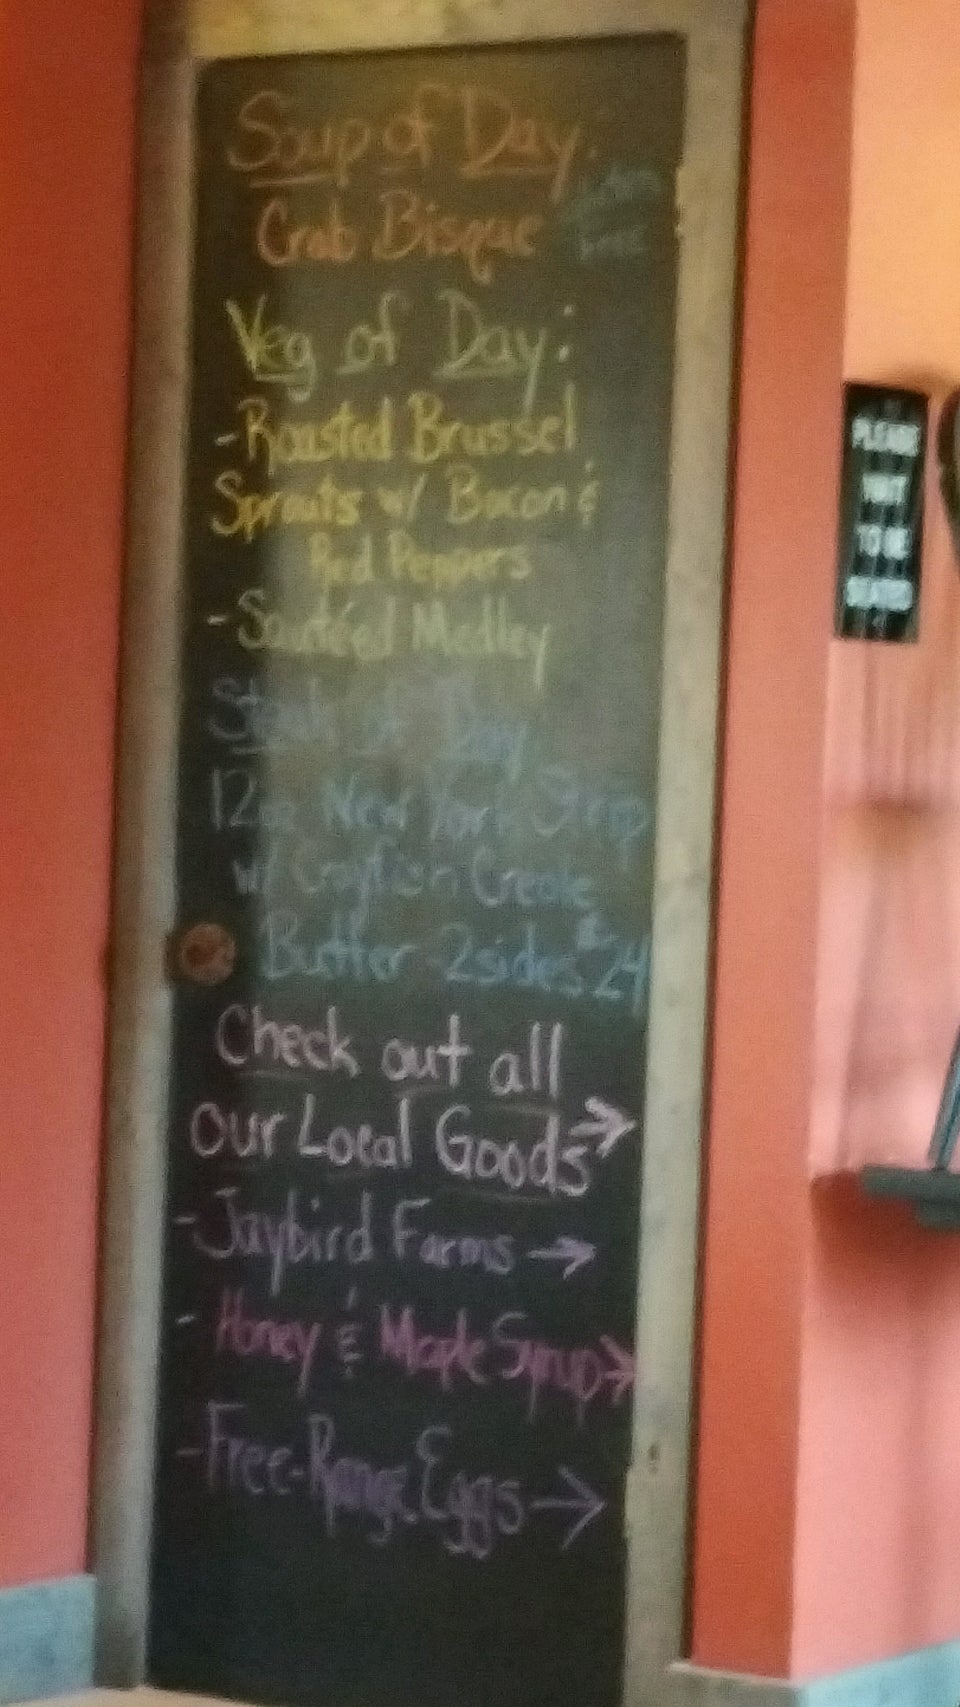 Soup of Day:
Crab Bisque
Free
Veg of Day:
- Roasted Brussel
Sprouts w/ Bacon &
Red Peppers
- Sautéed Medley
Steak of Day
12oz New York Strip
w/ Crayfish Creole
Butter 2 sides & 24
Check out all
our Local Goods →
- Jaybird Farms →
- Honey & Maple Syrup →
- Free-Range Eggs →
PLEASE
WAIT
TO BE
SEATED